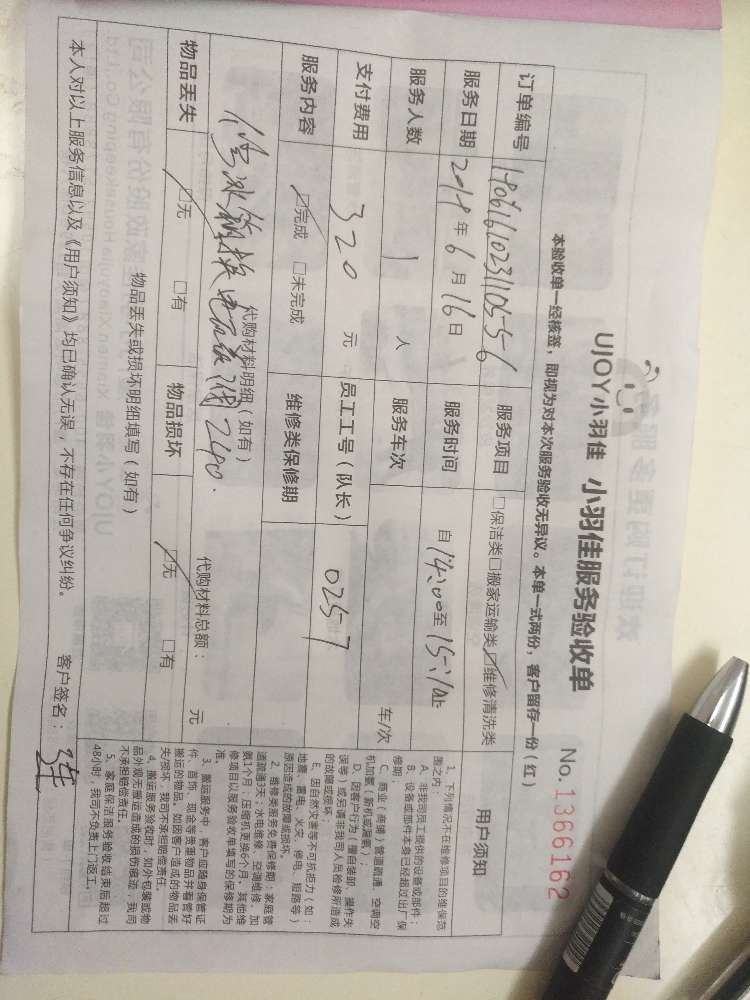 UJOY小羽佳 小羽佳服务验收单 No.1366162
本验收单一经核签，即视为对本次服务验收无异议。本单一式两份，客户留存一份（红）
订单编号 服务项目 □保洁类□搬家运输类☑维修清洗类
服务日期 2018年6月16日 服务时间 自14:00至15:10止
服务人数 1 人 服务车次 车/次
支付费用 320 元 员工工号（队长） 0257
服务内容 ☑完成 □未完成 维修类保修期
代购材料明细（如有） 代购材料总额： 元
240.
物品丢失 ☑无 □有 物品损坏 ☑无 □有
物品丢失或损坏明细填写（如有）
本人对以上服务信息以及《用户须知》均已确认无误，不存在任何争议纠纷。 客户签名：
用户须知
1、下列情况不在维修项目的维保范
围之内：
A、非我司员工提供的设备或部件；
B、设备或部件本身已经超过出厂保
修期；
C、商业（商铺）管道疏通、空调空
机加氨（新机或漏氨）；
D、因客户行为（擅自装卸、操作失
误等）或另请非我司人员检修所造成
的故障或损坏；
E、因自然灾害等不可抗拒力（如：
地震、雷电、火灾、停电、短路等）
原因造成的故障或损坏。
2、维修类服务免费保修期：家庭管
道疏通3天；水电维修、空调维修、加
氨1个月；压缩机更换6个月，其他维
修项目以服务验收单填写的保修期为
准。
3、搬运服务中，客户应随身保管证
件、首饰、现金等贵重物品并看管好
搬运的物品。如因客户造成的物品丢
失/损坏，我司不承担赔偿责任。
4、搬运服务验收时，如外包装或物
品外观无搬运造成的损伤痕迹，我司
不承担赔偿责任。
5、家庭保洁服务验收结束后超过
48小时，我司不负责上门返工。